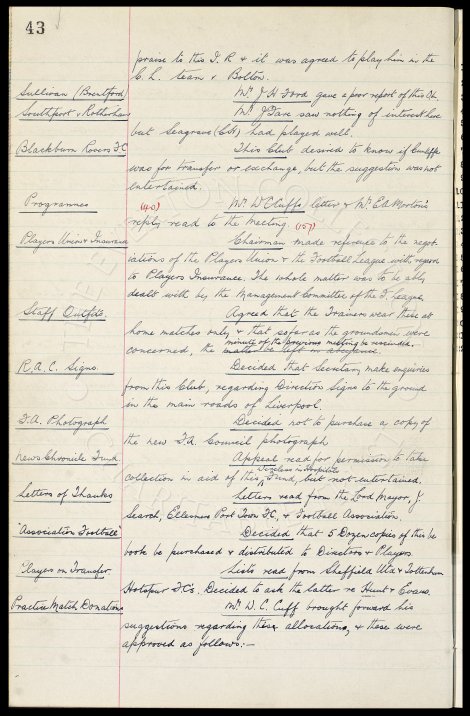 43
praise to this I.R & it was agreed to play him in the
C.L. team v Bolton.
Sullivan (Brentford) Mr. J H Ford gave a poor report of this Ch.
Southport v Rotherham Mr. J saw nothing of interest here
but Seagrave (CH) had played well.
Blackburn Rovers F.C This Club desired to know if Cunliffe
was for transfer or exchange, but the suggestion was not
entertained.
Programmes (40) Mr. W Cluffs letter & Mr. E A Morton's
reply read to the Meeting. (157)
Players Union & Insurance Chairman made reference to the negot-
iations of the Players Union & the Football League with regard
to Players Insurance. The whole matter was to be ably
dealt with by the Management Committee of the F. League.
Staff Outfits. Agreed that the Trainers wear these at
home matches only & that so far as the groundsmen were
concerned, the minute of the previous meeting be rescinded.
matter be left in abeyance.
R.A.C. Signs. Decided that Secretary make enquiries
from this Club, regarding Direction Signs to the ground
in the main roads of Liverpool.
F.A. Photograph Decided not to purchase a copy of
the new F.A. Council photograph
News Chronicle Fund. Appeal read for permission to take
collection in aid of this Wireless in Hospitals Fund, but not entertained.
Letters of Thanks Letters read from the Lord Mayor, J.
Search, Ellesmere Port Town F.C. & Football Association.
"Association Football" Decided that 5 Dozen copies of this
book be purchased & distributed to Directors & Players
Players on Transfer Lists read from Sheffield Utd & Tottenham
Hotspur F.C's. Decided to ask the latter re Hunt & Evans.
Practice Match Donations Mr. W. C. Cuff brought forward his
suggestions regarding these allocations, & these were
approved as follows:—